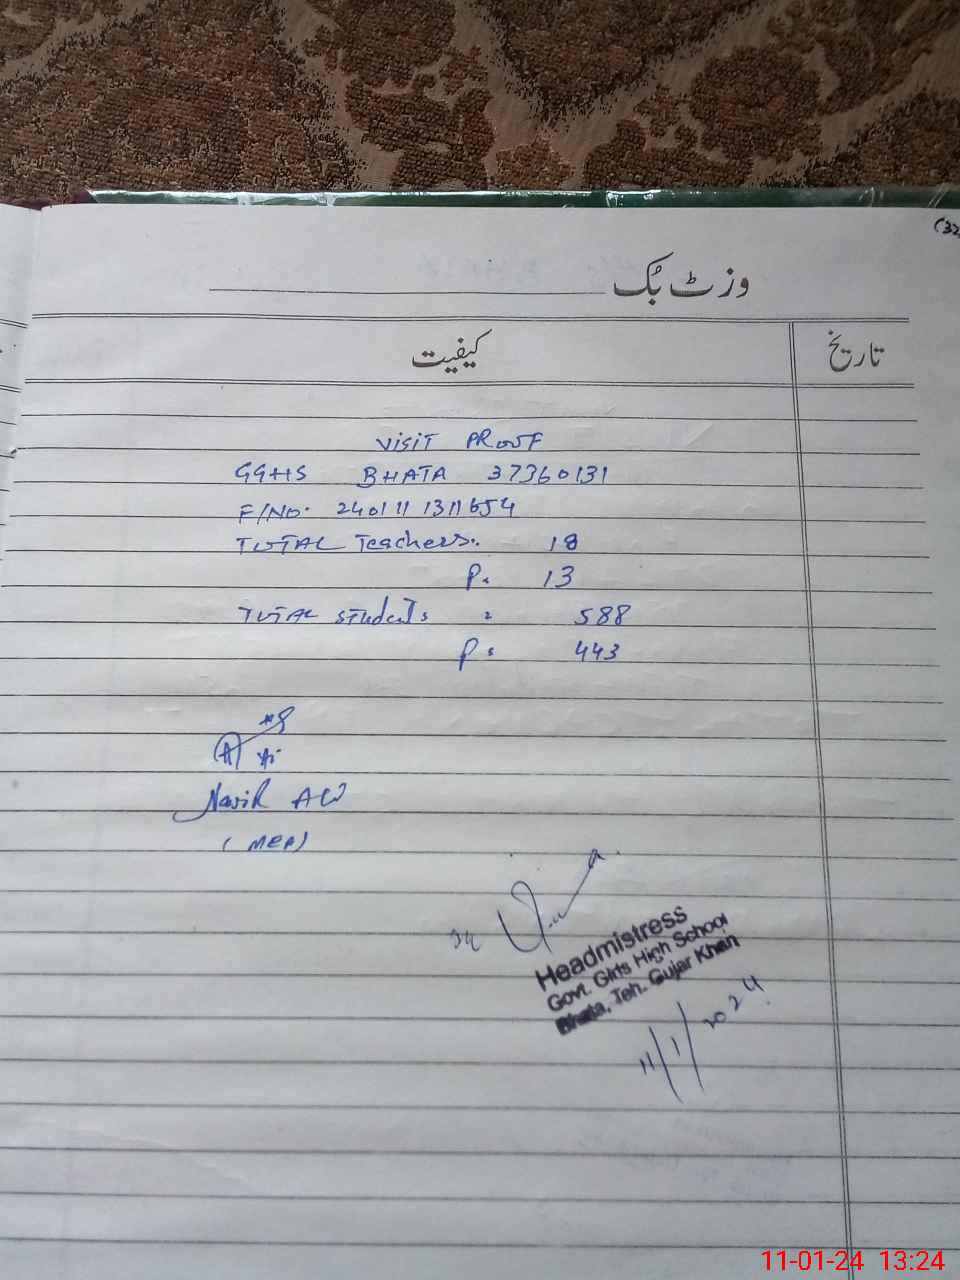 (32
وزٹ بُک
کیفیت
تاریخ
VISIT PROOF
GGHS BHATA 37360131
F/NO. 240111 1311654
TOTAL Teachers. 18
P. 13
TOTAL Students = 588
P = 443
(MEA)
Headmistress
Govt. Girls High School
Bhata, Teh. Gujar Khan
11/1/2024
11-01-24 13:24